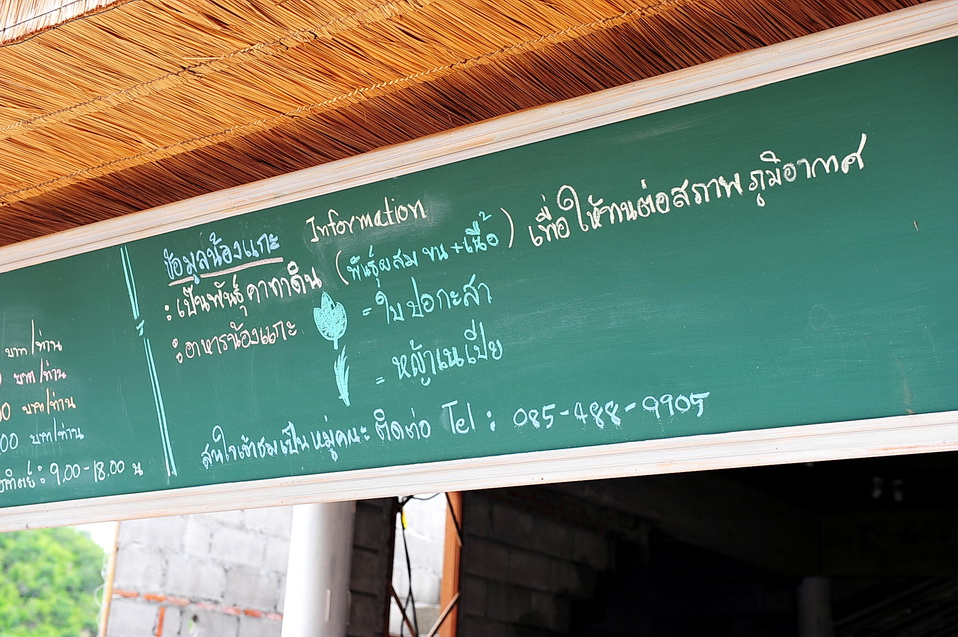 ข้อมูลน้องแกะ Information
: เป็นพันธุ์ คาทาดิน (พันธุ์ผสม ขน + เนื้อ) เพื่อให้ทนต่อสภาพภูมิอากาศ
: อาหารน้องแกะ = ใบปอกะสา
= หญ้าเนเปีย
สนใจเข้าชมเป็นหมู่คณะ ติดต่อ Tel : 085-488-9905
บาท/ท่าน
บาท/ท่าน
0 บาท/ท่าน
00 บาท/ท่าน
อาทิตย์ : 9.00 - 18.00 น